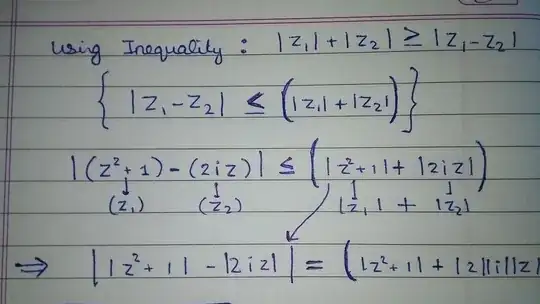 Using Inequality : |z₁| + |z₂| ≥ |z₁ - z₂|
{ |z₁ - z₂| ≤ (|z₁| + |z₂|) }
|(z² + 1) - (2iz)| ≤ (|z² + 1| + |2iz|)
(z₁) (z₂) |z₁| + |z₂|
⇒ ||z² + 1| - |2iz|| = (|z² + 1| + |2||i||z|